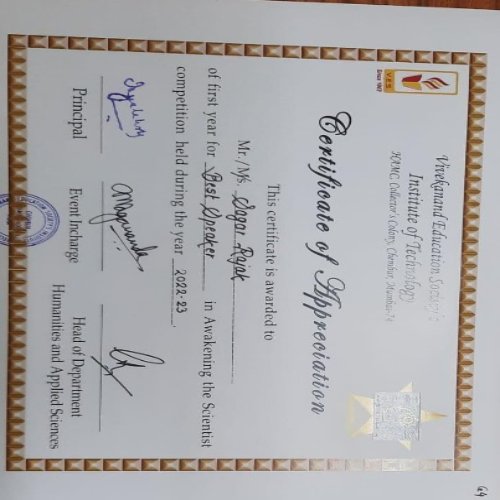 V E S
Since 1962
Vivekanand Education Society's
Institute of Technology
HAMC, Collector's Colony, Chembur, Mumbai-74
Certificate of Appreciation
This certificate is awarded to
Mr./Ms. Sagar Rajak
of first year for Best Speaker in Awakening the Scientist
competition held during the year 2022-23.
Principal
Event Incharge
Head of Department
Humanities and Applied Sciences